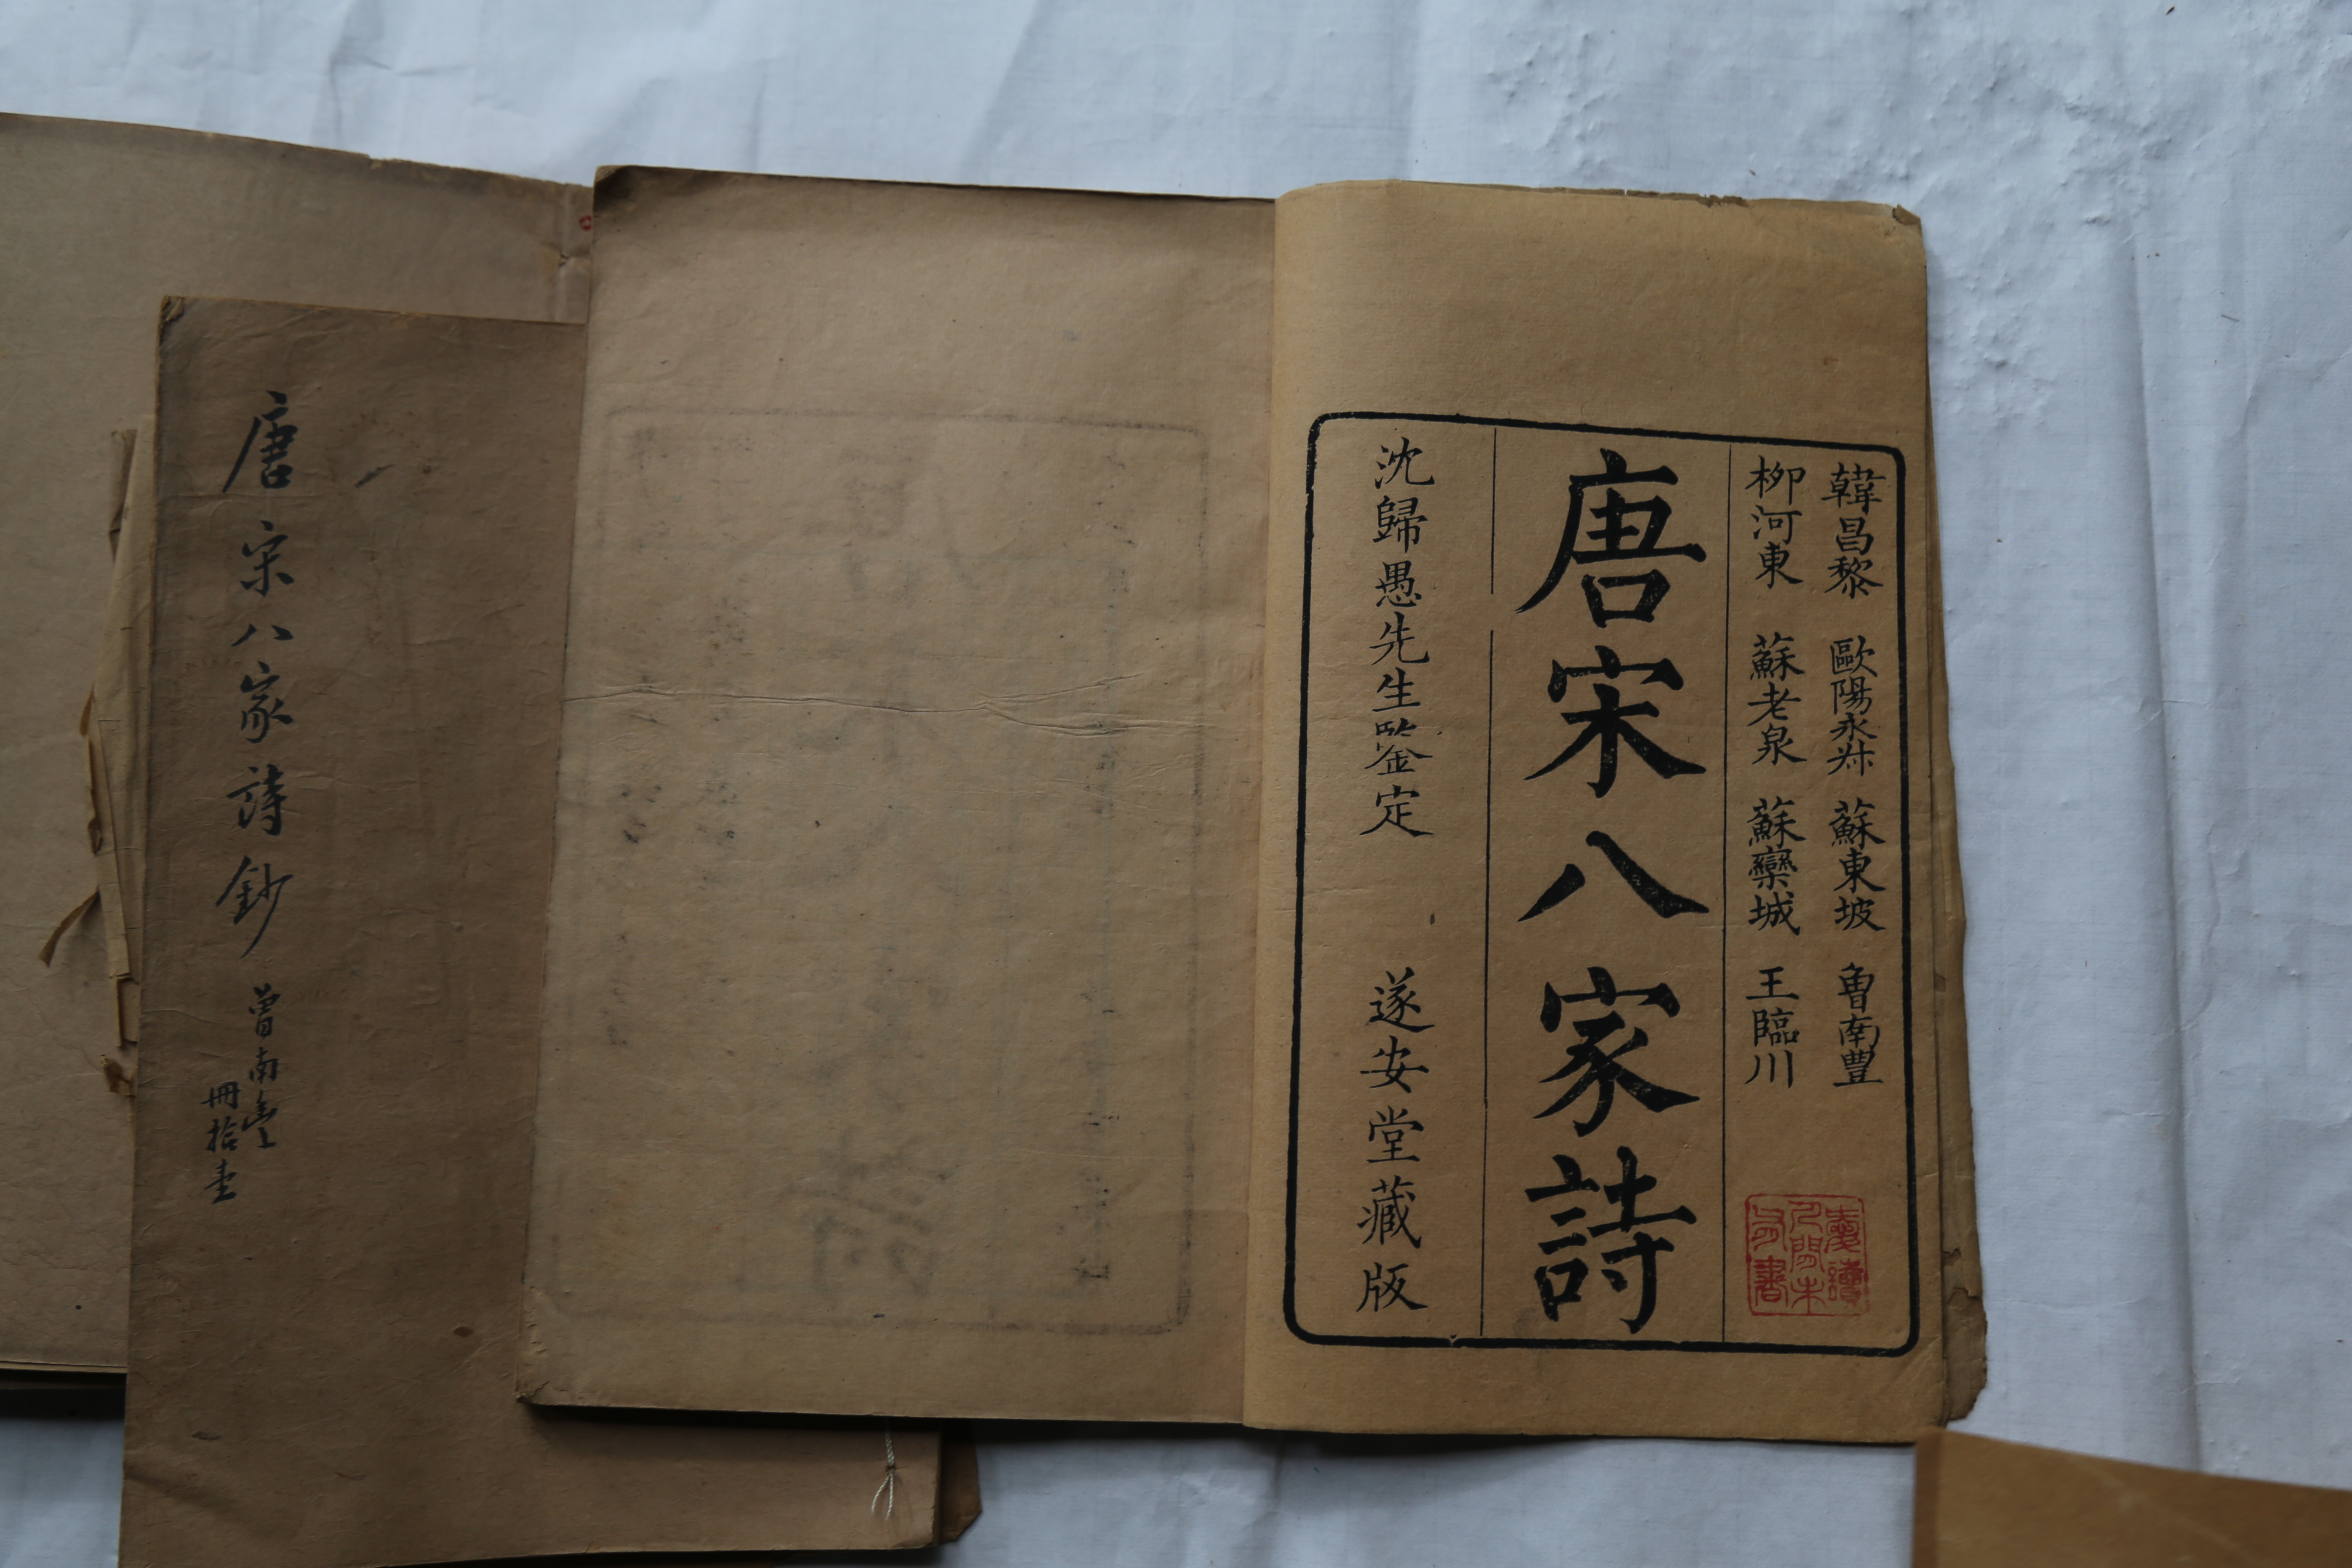 韓昌黎 歐陽永叔 蘇東坡 曾南豐
柳河東 蘇老泉 蘇欒城 王臨川
愛讀
人間未
見書
唐宋八家詩
沈歸愚先生鑒定 遂安堂藏版
唐宋八家詩鈔
曾南豐
冊拾壹